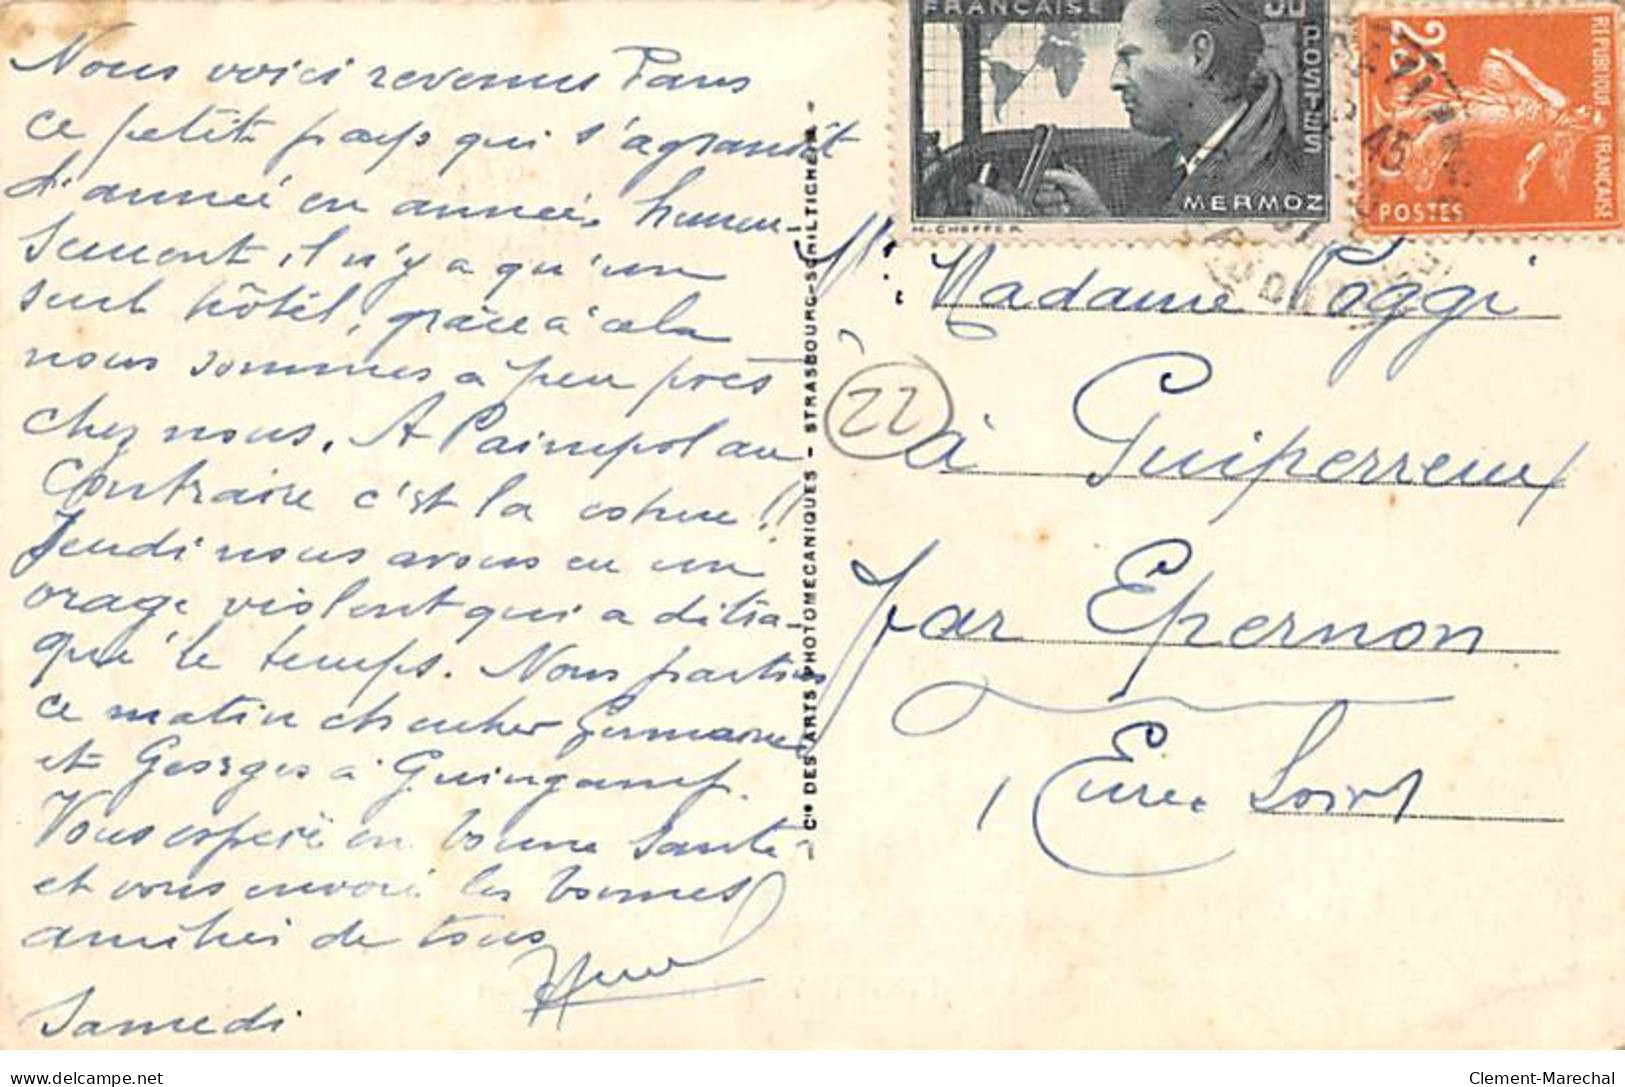 Nous voici revenus Dans
ce petit pays qui s'agrandit
d'année en année, heureu
sement il n'y a qu'un
seul hôtel, grâce à cela
nous sommes à peu près
chez nous. A Paimpol au
Contraire c'est la cohue !!
Jeudi nous avons eu un
orage violent qui a détra-
qué le temps. Nous partions
ce matin chercher Germaine
et Georges à Guingamp.
Vous espère en bonne santé
et vous envoie les bonnes
amitiés de tous
Samedi
Cie DES ARTS PHOTOMECANIQUES - STRASBOURG-SCHILTICHEIM -
FRANÇAISE
POSTES
MERMOZ
H. CHEFFER
25
REPUBLIQUE FRANÇAISE
POSTES
45
Madame Poggi
22
à Guiperreux
par Epernon
Eure & Loir
Clement-Marechal
www.delcampe.net